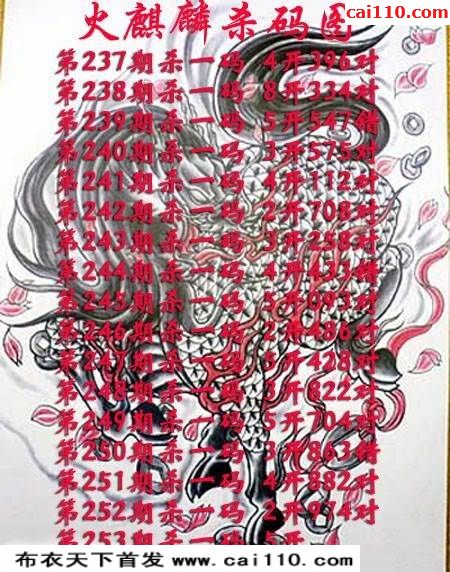 cai110.com
火麒麟杀码图
第237期杀一码 4开396对
第238期杀一码 8开334对
第239期杀一码 5开547错
第240期杀一码 3开575对
第241期杀一码 4开112对
第242期杀一码 2开708对
第243期杀一码 3开258对
第244期杀一码 4开433错
第245期杀一码 5开093对
第246期杀一码 2开486对
第247期杀一码 5开428对
第248期杀一码 3开822对
第249期杀一码 5开704对
第250期杀一码 3开863错
第251期杀一码 4开882对
第252期杀一码 2开974对
第253期杀一码 5开
布衣天下首发 www.cai110.com